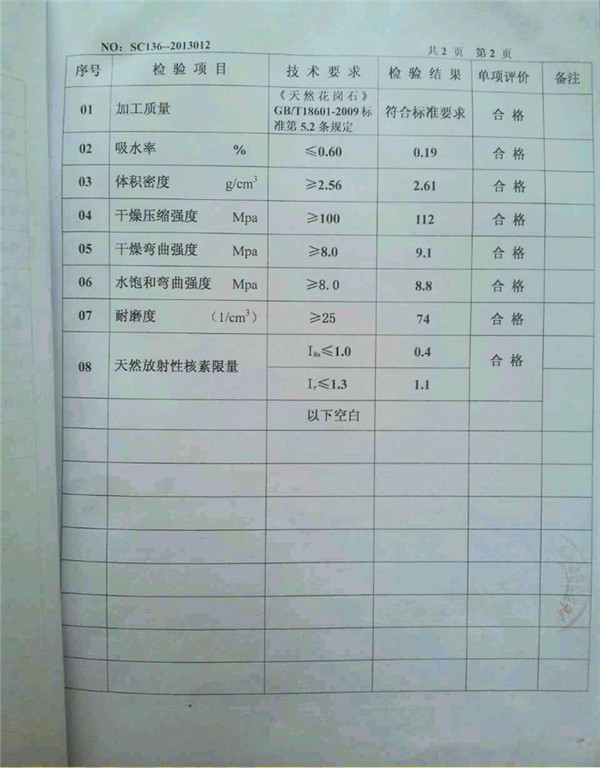 NO：SC136--2013012
共 2 页 第 2 页
序号 检 验 项 目 技 术 要 求 检 验 结 果 单项评价 备注
01 加工质量 《天然花岗石》
GB/T18601-2009标
准第 5.2 条规定 符合标准要求 合 格
02 吸水率 % ≤0.60 0.19 合 格
03 体积密度 g/cm³ ≥2.56 2.61 合 格
04 干燥压缩强度 Mpa ≥100 112 合 格
05 干燥弯曲强度 Mpa ≥8.0 9.1 合 格
06 水饱和弯曲强度 Mpa ≥8.0 8.8 合 格
07 耐磨度 （1/cm³） ≥25 74 合 格
08 天然放射性核素限量 IRa≤1.0 0.4 合 格
Ir≤1.3 1.1
以下空白